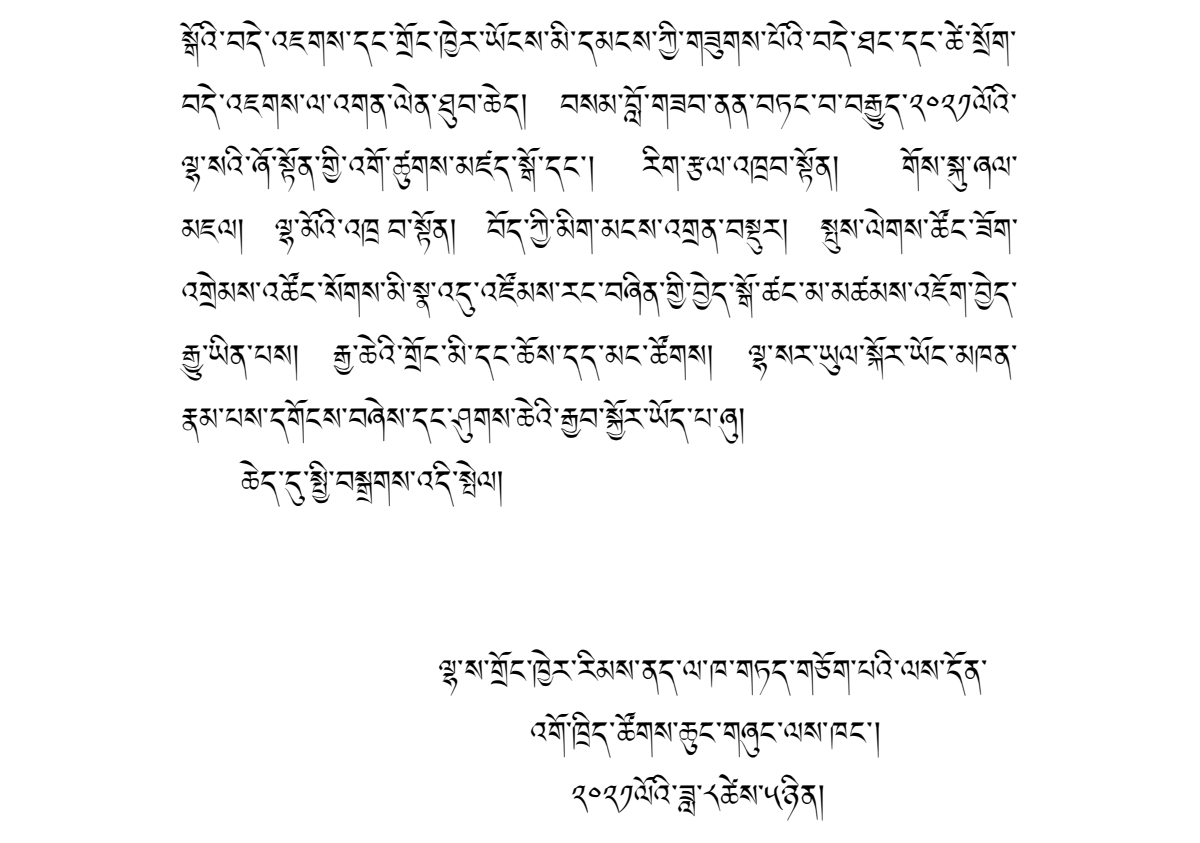 སྒོའི་བདེ་འཇགས་དང་གྲོང་ཁྱེར་ཡོངས་མི་དམངས་ཀྱི་གཟུགས་པོའི་བདེ་ཐང་དང་ཚེ་སྲོག་
བདེ་འཇགས་ལ་འགན་ལེན་ཐུབ་ཆེད། བསམ་བློ་གཟབ་ནན་བཏང་བ་བརྒྱུད་༢༠༢༡ལོའི་
ལྷ་སའི་ཞོ་སྟོན་གྱི་འགོ་ཚུགས་མཛད་སྒོ་དང་། རིག་རྩལ་འཁྲབ་སྟོན། གོས་སྐུ་ཞལ་
མཇལ། ལྷ་མོའི་འཁྲ བ་སྟོན། བོད་ཀྱི་མིག་མངས་འགྲན་བསྡུར། སྤུས་ལེགས་ཚོང་ཟོག་
འགྲེམས་འཚོང་སོགས་མི་སྣ་འདུ་འཛོམས་རང་བཞིན་གྱི་བྱེད་སྒོ་ཚང་མ་མཚམས་འཇོག་བྱེད་
རྒྱུ་ཡིན་པས། རྒྱ་ཆེའི་གྲོང་མི་དང་ཆོས་དད་མང་ཚོགས། ལྷ་སར་ཡུལ་སྐོར་ཡོང་མཁན་
རྣམ་པས་དགོངས་བཞེས་དང་ཤུགས་ཆེའི་རྒྱབ་སྐྱོར་ཡོད་པ་ཞུ།
ཆེད་དུ་སྤྱི་བསྒྲགས་འདི་སྤེལ།
ལྷ་ས་གྲོང་ཁྱེར་རིམས་ནད་ལ་ཁ་གཏད་གཅོག་པའི་ལས་དོན་
འགོ་ཁྲིད་ཚོགས་ཆུང་གཞུང་ལས་ཁང་།
༢༠༢༡ལོའི་ཟླ་༨ཚེས་༥ཉིན།